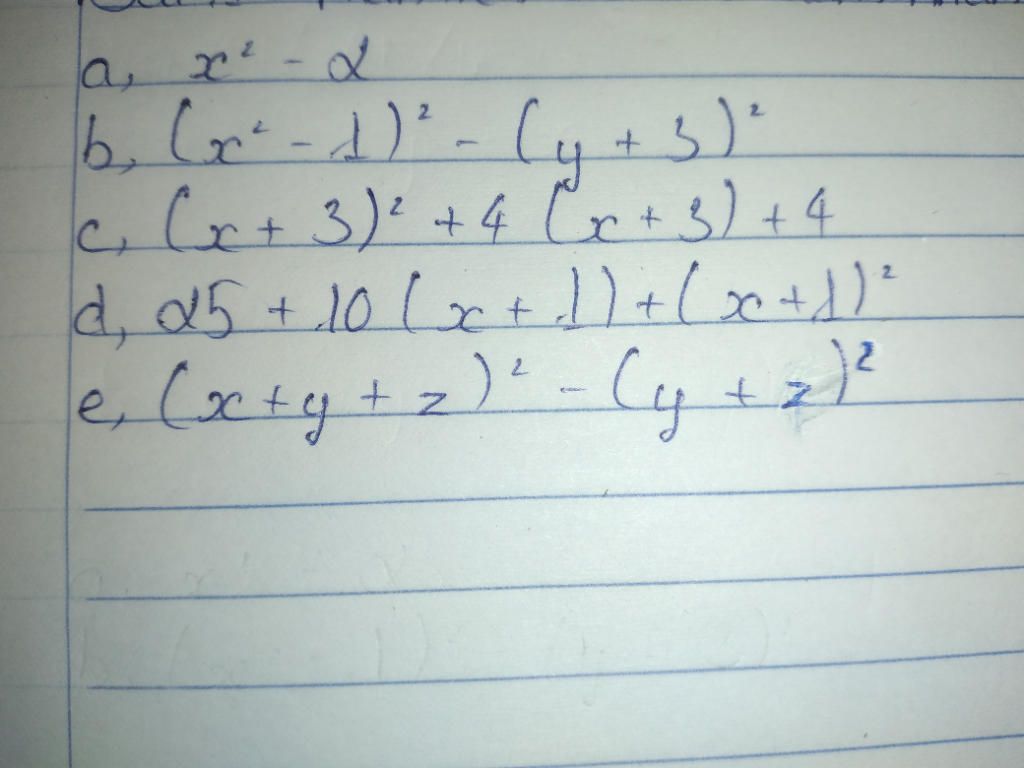 a, x² - 2
b, (x² - 1)² - (y + 3)²
c, (x + 3)² + 4 (x + 3) + 4
d, 25 + 10 (x + 1) + (x + 1)²
e, (x + y + z)² - (y + z)²